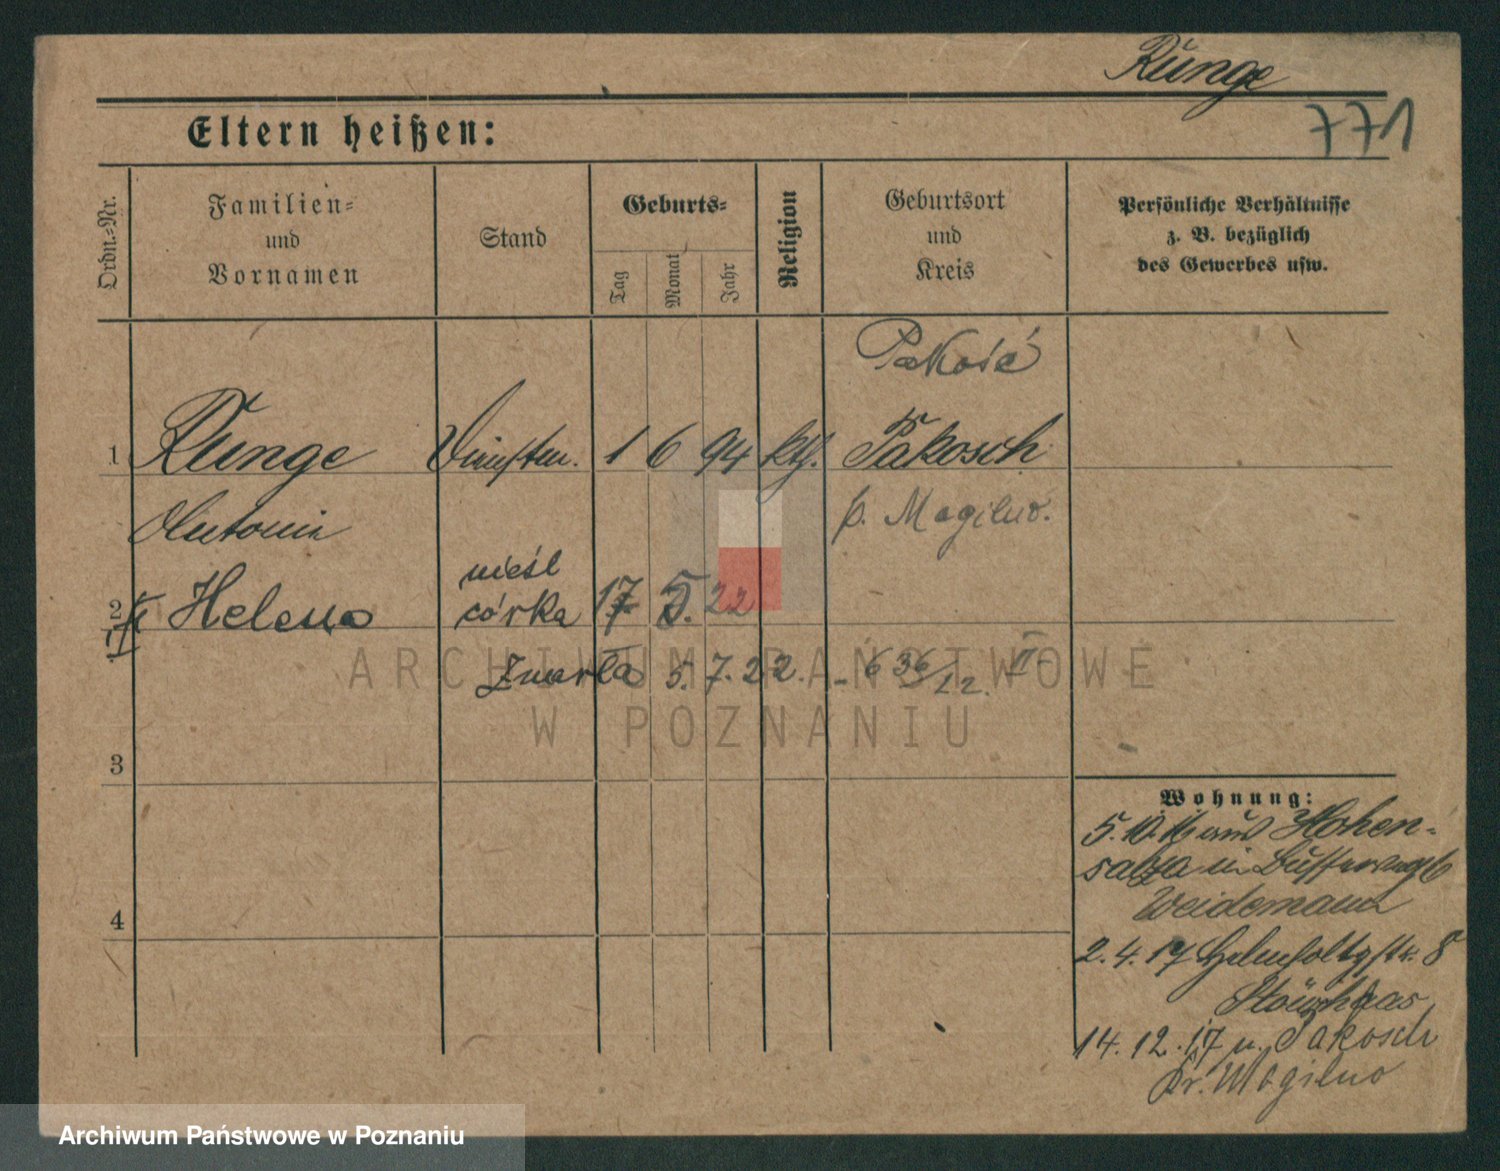 Runge
771
Eltern heißen:
Ordn.-Nr.
Familien-
und
Vornamen
Stand
Geburts-
Tag
Monat
Jahr
Religion
Geburtsort
und
Kreis
Persönliche Verhältnisse
z. B. bezüglich
des Gewerbes usw.
Pakość
1 Runge 1 6 94 kth. Pakosch
p. Mogilno.
nieśl
2 Helena córka 17 5. 22
II
Zmarła 5. 7. 22. - 636/22. II
3
4
Wohnung:
5. 10. aus Hohen-
salza in 6
Weidemann
2. 4. 17 Helmholtzstr. 8
14. 12. 17 n. Pakosch
Kr. Mogilno
ARCHIWUM PAŃSTWOWE
W POZNANIU
Archiwum Państwowe w Poznaniu